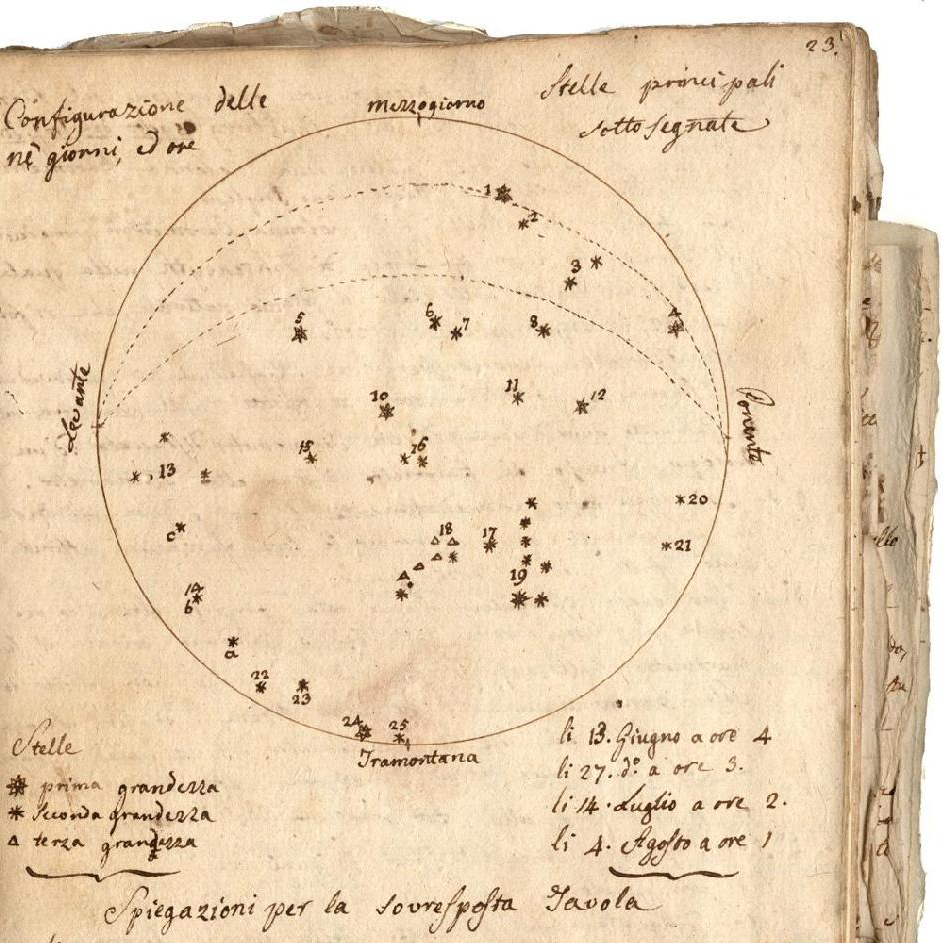 23.
Configurazione delle
Stelle principali
nè giorni, ed ore
sotto segnate
mezzogiorno
1
2
3
4
5
6
7
8
10
11
12
Levante
Ponente
15
16
13
20
c
18
17
21
19
14
b
a
22
23
24
25
Tramontana
Stelle
prima grandezza
seconda grandezza
terza grandezza
li 13. Giugno a ore 4
li 27. do. a ore 3.
li 14. Luglio a ore 2.
li 4. Agosto a ore 1
Spiegazioni per la sovresposta Tavola